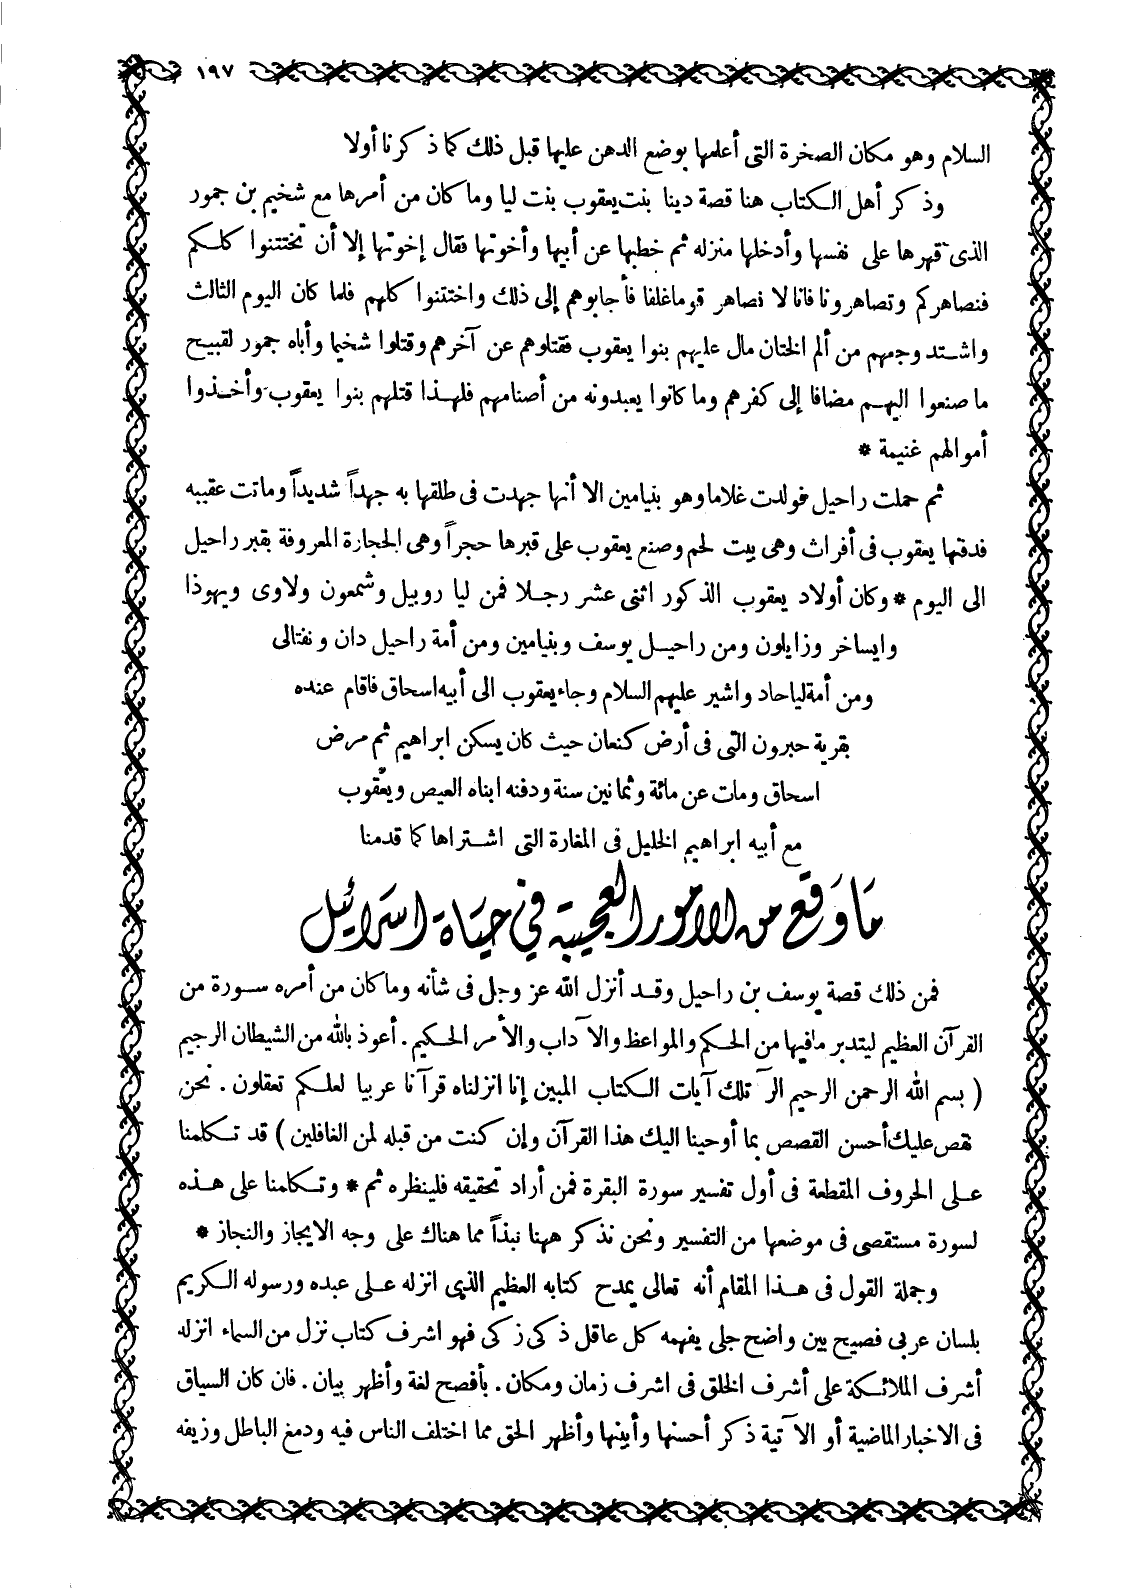 ١٩٧
السلام وهو مكان الصخرة التى أعلمها بوضع الدهن عليها قبل ذلك كما ذكرنا أولا
وذكر أهل الكتاب هنا قصة دينا بنت يعقوب بنت ليا وما كان من أمرها مع شخيم بن جمور
الذى قهرها على نفسها وأدخلها منزله ثم خطبها عن أبيها وأخوتها فقال إخوتها إلا أن تختتنوا كلكم
فنصاهركم وتصاهرونا فانا لا نصاهر قوما غلفا فأجابوهم إلى ذلك واختتنوا كلهم فلما كان اليوم الثالث
واشتد وجمهم من ألم الختان مال عليهم بنوا يعقوب فقتلوهم عن آخرهم وقتلوا شخيما وأباه جمور لقبيح
ما صنعوا اليهم مضافا إلى كفرهم وما كانوا يعبدونه من أصنامهم فلهذا قتلهم بنوا يعقوب وأخذوا
أموالهم غنيمة *
ثم حملت راحيل فولدت غلاما وهو بنيامين الا أنها جهدت فى طلقها به جهداً شديداً وماتت عقيبه
فدقنها يعقوب فى أفراث وهى بيت لحم وصنع يعقوب على قبرها حجراً وهى الحجارة المعروفة بقبر راحيل
الى اليوم * وكان أولاد يعقوب الذكور اثنى عشر رجلا فمن ليا روبيل وشمعون ولاوى ويهوذا
وايساخر وزايلون ومن راحيل يوسف وبنيامين ومن أمة راحيل دان ونفتالى
ومن أمة ليا حاد واشير عليهم السلام وجاء يعقوب الى أبيه اسحاق فاقام عنده
بقرية حبرون التى فى أرض كنعان حيث كان يسكن ابراهيم ثم مرض
اسحاق ومات عن مائة وثمانين سنة ودفنه ابناه العيص ويعقوب
مع أبيه ابراهيم الخليل فى المغارة التى اشتراها كما قدمنا
مَا وَقَع من الامور العجيبة في حيَاة اسرائيل
فمن ذلك قصة يوسف بن راحيل وقد أنزل الله عز وجل فى شأنه وما كان من أمره سورة من
القرآن العظيم ليتدبر مافيها من الحكم والمواعظ والآداب والأمر الحكيم . أعوذ بالله من الشيطان الرجيم
( بسم الله الرحمن الرحيم الر تلك آيات الكتاب المبين إنا انزلناه قرآنا عربيا لعلكم تعقلون . نحن
نقص عليك أحسن القصص بما أوحينا اليك هذا القرآن وإن كنت من قبله لمن الغافلين ) قد تكلمنا
على الحروف المقطعة فى أول تفسير سورة البقرة فمن أراد تحقيقه فلينظره ثم * وتكلمنا على هذه
لسورة مستقصى فى موضعها من التفسير ونحن نذكر ههنا نبذاً مما هناك على وجه الايجاز والنجاز *
وجملة القول فى هذا المقام أنه تعالى يمدح كتابه العظيم الذى انزله على عبده ورسوله الكريم
بلسان عربى فصيح بين واضح جلى يفهمه كل عاقل ذكى زكى فهو اشرف كتاب نزل من السماء انزله
أشرف الملائكة على أشرف الخلق فى اشرف زمان ومكان . بأفصح لغة وأظهر بيان . فان كان السياق
فى الاخبار الماضية أو الآتية ذكر أحسنها وأبينها وأظهر الحق مما اختلف الناس فيه ودمغ الباطل وزيفه